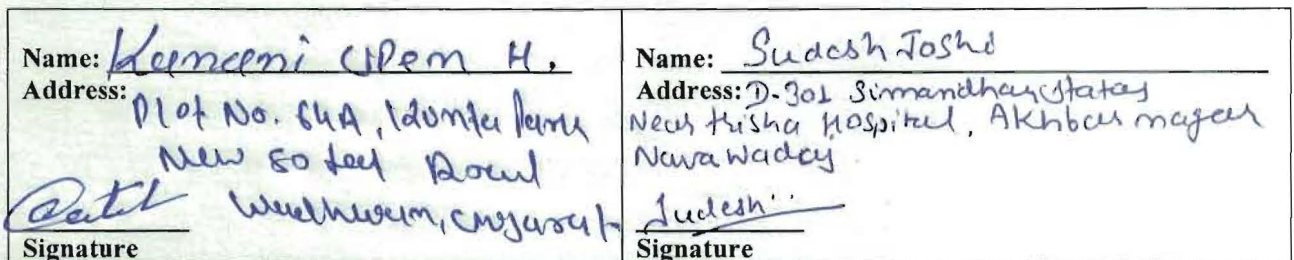 Name: Kanani Upen H.
Address:
Plot No. 64A, Kunta
New 80 feet Road
Wadhwan, Gujarat
Signature
Name: Sudesh Joshi
Address: D-301 Simandhar Status
Near trisha Hospital, Akhbar nagar
Nava Wadaj
Sudesh
Signature